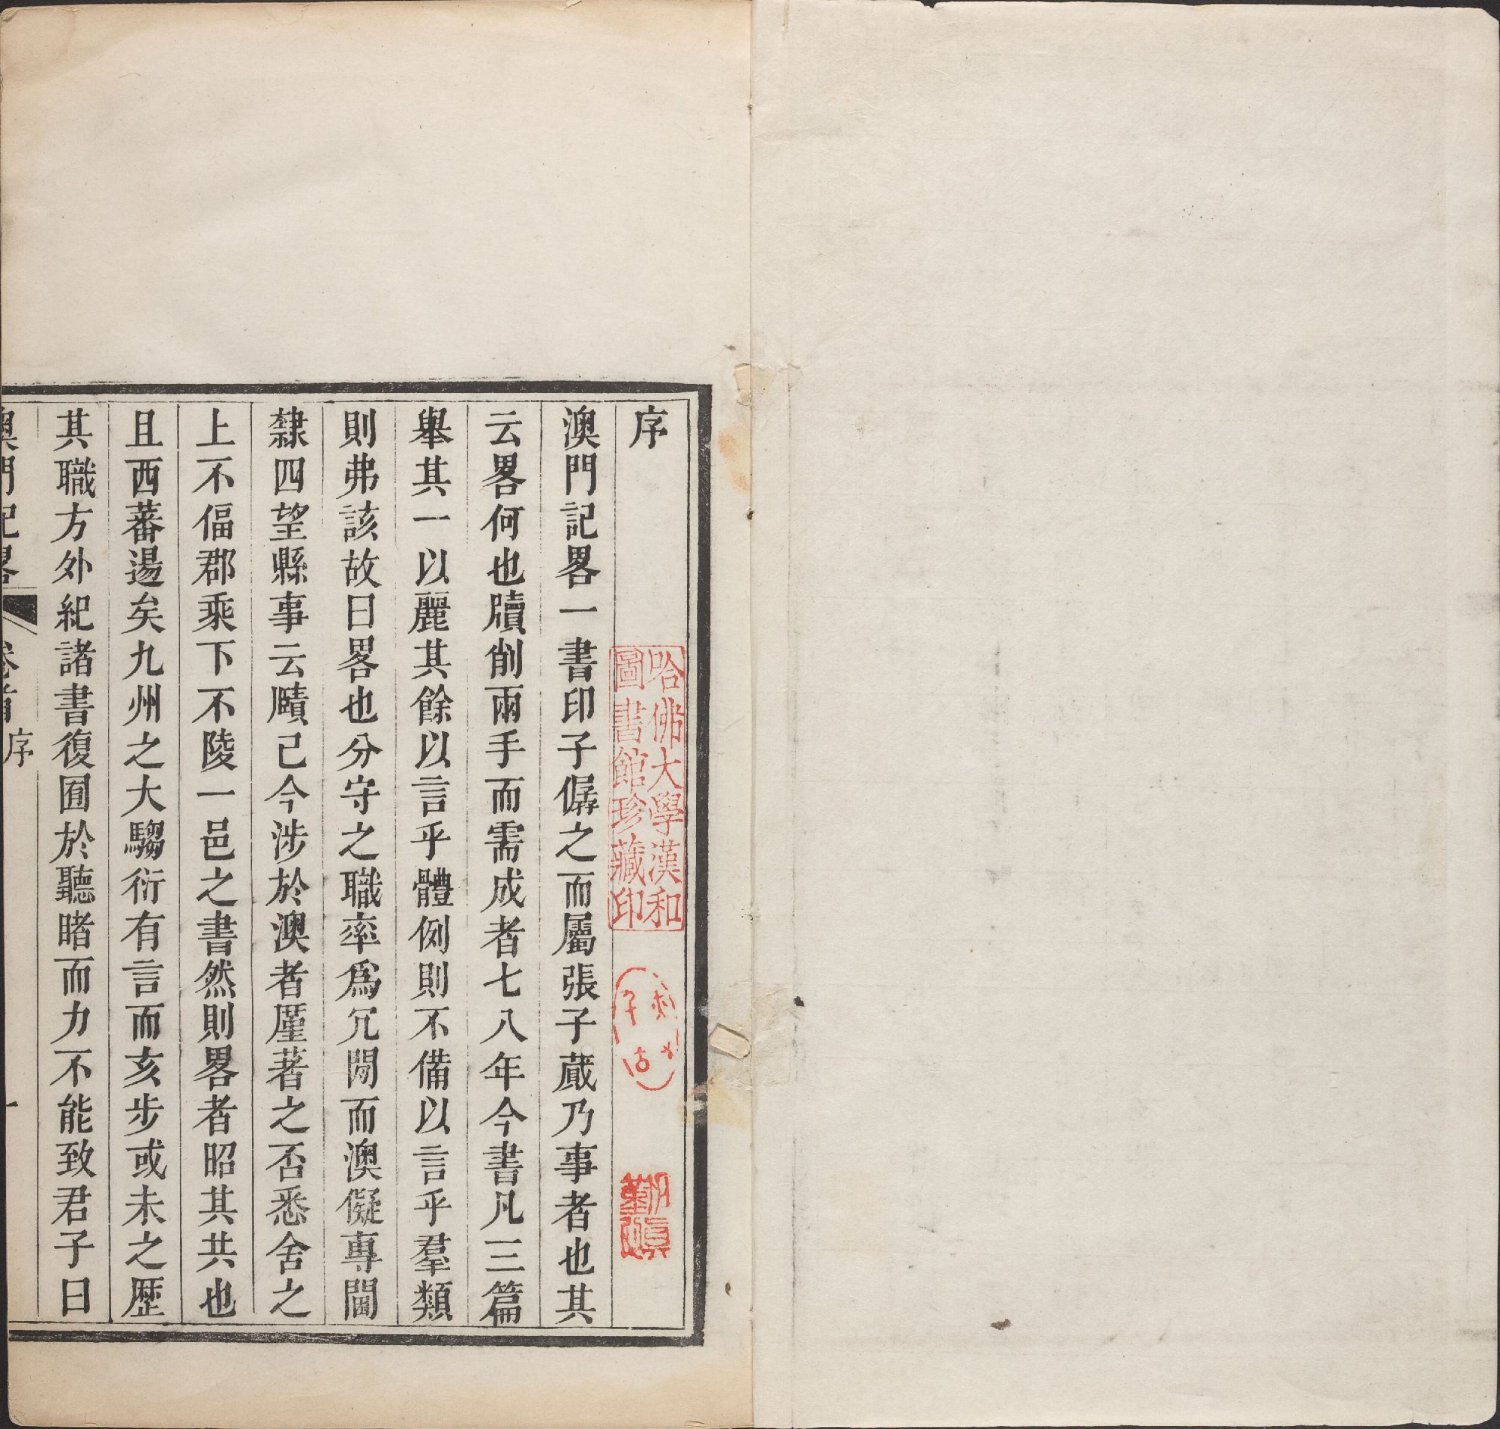 序
哈佛大學漢和
圖書館珍藏印
澳門記畧一書印子僝之而屬張子蕆乃事者也其
云畧何也牘削兩手而需成者七八年今書凡三篇
舉其一以麗其餘以言乎體例則不備以言乎羣類
則弗該故曰畧也分守之職率爲冗閒而澳儗專閫
隸四望縣事云賾己今涉於澳者厪著之否悉舍之
上不偪郡乘下不陵一邑之書然則畧者昭其共也
且西蕃逷矣九州之大騶衍有言而亥步或未之歷
其職方外紀諸書復囿於聽睹而力不能致君子曰
澳門記畧 卷首 序 一